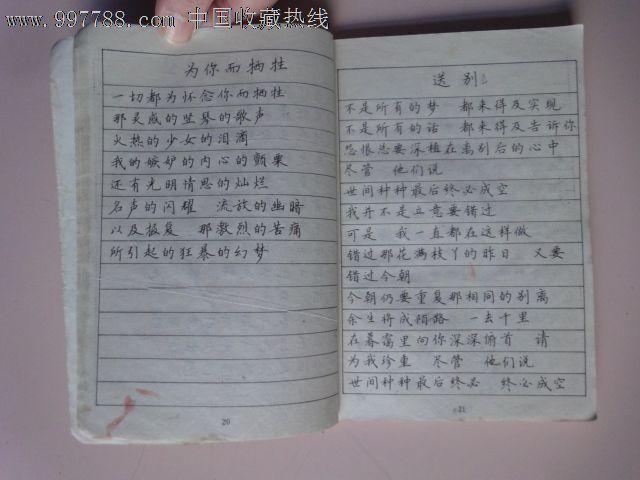 www.997788.com 中国收藏热线
为你而牺牲
一切都为怀念你而牺牲
那灵感的竖琴的歌声
火热的少女的泪滴
我的嫉妒的内心的颤栗
还有光明情思的灿烂
名声的闪耀 流放的幽暗
以及报复 那激烈的苦痛
所引起的狂暴的幻梦
20
送别
不是所有的梦 都来得及实现
不是所有的话 都来得及告诉你
怨恨总要深植在离别后的心中
尽管 他们说
世间种种最后终必成空
我并不是立意要错过
可是 我一直都在这样做
错过那花满枝丫的昨日 又要
错过今朝
今朝仍要重复那相同的别离
余生将成陌路 一去千里
在暮霭里向你深深俯首 请
为我珍重 尽管 他们说
世间种种最后终必 终必成空
21